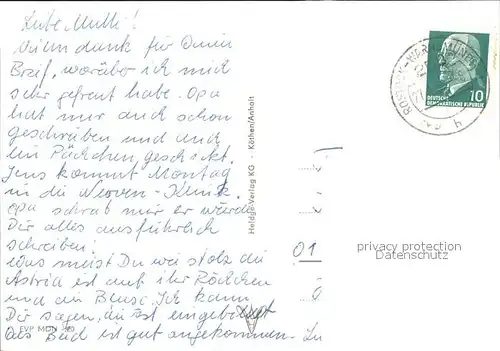 Liebe Mutti!
Vielen dank für Deinen
Brief, worüber ich mich
sehr gefreut habe. Opa
hat mir auch schon
geschrieben und auch
ein Päckchen geschickt.
Jens kommt Montag
in die Nerven-Klinik.
Opa schrieb mir er würde
Dir alles ausführlich
schreiben.
Was meist Du wie stolz die
Astrid ist auf ihr Röckchen
und die Bluse. Ich kann
Dir sagen, die ist eingebildet
Als Bild ist gut angekommen.
EVP MDN
Heldge-Verlag KG · Köthen/Anhalt
ROSTOCK-WARNEMÜNDE
10
DEUTSCHE
DEMOKRATISCHE REPUBLIK
h
01
privacy protection
Datenschutz